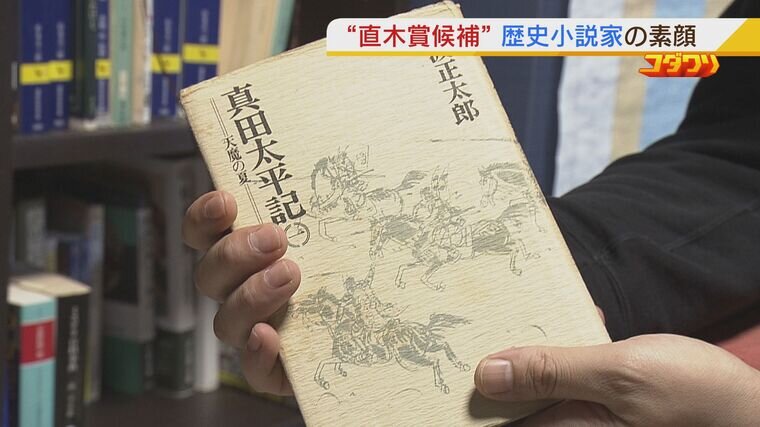 “直木賞候補” 歴史小説家の素顔
コダワリ
正太郎
真田太平記㈠
天魔の夏